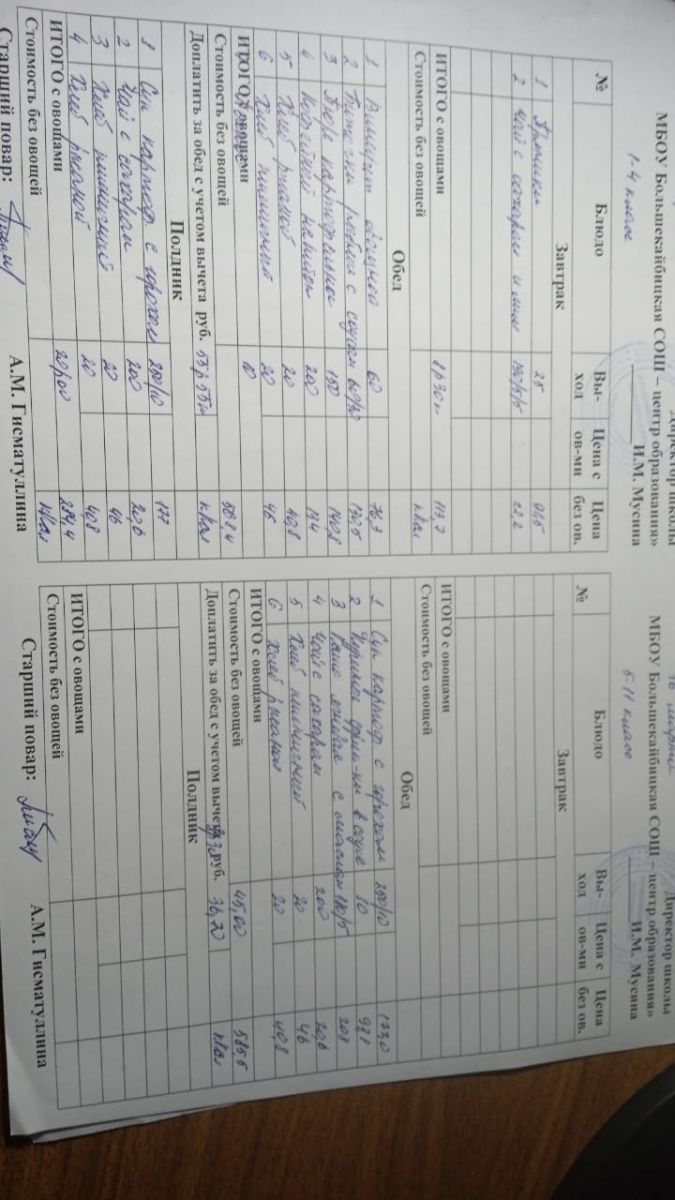 Директор школы
МБОУ Большекайбицкая СОШ – центр образования»
И.М. Мусина
1-4 класс
№ Блюдо Вы-ход Цена с ов-ми Цена без ов.
Завтрак
1 Пряники 25 91,5
2 Чай с сахаром и 190/5/5 22.2
ИТОГО с овощами 8р30к 113,7
Стоимость без овощей ккал
Обед
1 Винегрет овощной 60 76,3
2 рыбные с соусом 130,5
3 Пюре картофельное 150 140,8
4 Кофейный напиток 200 134
5 Хлеб ржаной 20 40,8
6 Хлеб пшеничный 20 46
ИТОГО с овощами
Стоимость без овощей 568,4
Доплатить за обед с учетом вычета руб. 55р 55к ккал
Полдник
1 Суп картоф. с горохом 200/10 177
2 Чай с сахаром 200 20,6
3 Хлеб пшеничный 20 46
4 Хлеб ржаной 20 40,8
ИТОГО с овощами 20,00 284,4
Стоимость без овощей ккал
Старший повар: А.М. Гисматуллина
Директор школы
МБОУ Большекайбицкая СОШ – центр образования»
И.М. Мусина
5-11 класс
№ Блюдо Вы-ход Цена с ов-ми Цена без ов.
Завтрак
ИТОГО с овощами
Стоимость без овощей
Обед
1 Суп картоф. с горохом 200/10 177,0
2 в соусе
3 Каша с маслом 208
4 Чай с сахаром 200 20,6
5 Хлеб пшеничный 20 46
6 Хлеб ржаной 20 40,8
ИТОГО с овощами
Стоимость без овощей 45,00 585,5
Доплатить за обед с учетом вычета руб. 36,70 ккал
Полдник
ИТОГО с овощами
Стоимость без овощей
Старший повар: А.М. Гисматуллина